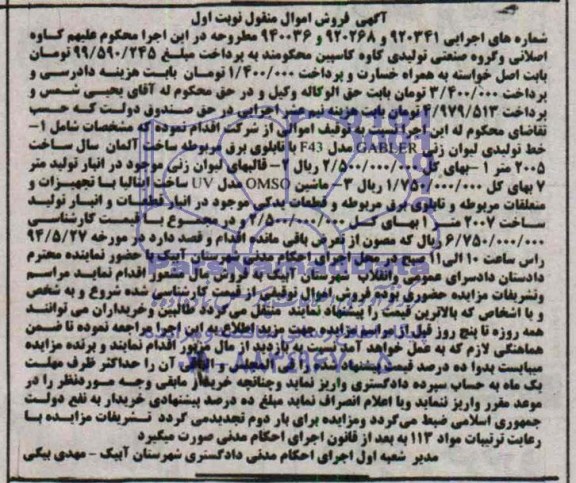 آگهی فروش اموال منقول نوبت اول
شماره های اجرایی ۹۲۰۳۴۱ و ۹۲۰۲۶۸ و ۹۴۰۰۳۶ مطروحه در این اجرا محکوم علیهم کاوه
اصلانی وگروه صنعتی تولیدی کاوه کاسپین محکومند به پرداخت مبلغ ۹۹/۵۹۰/۲۴۵ تومان
بابت اصل خواسته به همراه خسارت و پرداخت ۱/۴۰۰/۰۰۰ تومان بابت هزینه دادرسی و
پرداخت ۳/۴۰۰/۰۰۰ تومان بابت حق الوکاله وکیل و در حق محکوم له آقای یحیی شمس و
پرداخت ۴/۹۷۹/۵۱۳ تومان بابت هزینه نیم عشر اجرایی در حق صندوق دولت که حسب
تقاضای محکوم له این اجرا نسبت به توقیف اموالی از شرکت اقدام نموده که مشخصات شامل ۱-
خط تولیدی لیوان زنی GABLER مدل F43 با تابلوی برق مربوطه ساخت آلمان سال ساخت
۲۰۰۵ متر ۱ -بهای کل ۲/۵۰۰/۰۰۰/۰۰۰ ریال ۲- قالبهای لیوان زنی موجود در انبار تولید متر
۷ بهای کل ۱/۷۵۰/۰۰۰/۰۰۰ ریال ۳- ماشین OMSO مدل UV ساخت ایتالیا با تجهیزات و
متعلقات مربوطه و تابلوی برق مربوطه و قطعات یدکی موجود در انبار قطعات و انبار تولید
ساخت ۲۰۰۷ متر ۱ بهای کل ۲/۵۰۰/۰۰۰/۰۰۰ و در مجموع با قیمت کارشناسی
۶/۷۵۰/۰۰۰/۰۰۰ ریال که مصون از تعرض باقی مانده اقدام و قصد دارد در مورخه ۹۴/۵/۲۷
راس ساعت ۱۰ الی ۱۱ صبح در محل اجرای احکام مدنی شهرستان آبیک با حضور نماینده محترم
دادستان دادسرای عمومی وانقلاب شهرستان آبیک به فروش مال مذکور اقدام نماید مراسم
وتشریفات مزایده حضوری بوده فروش اموال توقیفی از قیمت کارشناسی شده شروع و به شخص
و یا اشخاص که بالاترین قیمت را پیشنهاد نمایند منتقل می گردد طالبین وخریداران می توانند
همه روزه تا پنج روز قبل از مراسم مزایده جهت مزید اطلاع به این اجرا مراجعه نموده تا ضمن
هماهنگی لازم که به عمل خواهد آمد نسبت به بازدید از مال مذکور اقدام نمایند و برنده مزایده
میبایست بدوا ده درصد قیمت پیشنهاد شده را فی المجلس و الباقی آن را حداکثر ظرف مهلت
یک ماه به حساب سپرده دادگستری واریز نماید وچنانچه خریدار مابقی وجه موردنظر را در
موعد مقرر واریز ننماید ویا اعلام انصراف نماید مبلغ ده درصد پیشنهادی خریدار به نفع دولت
جمهوری اسلامی ضبط می گردد ومزایده برای بار دوم تجدیدمی گردد تشریفات مزایده با
رعایت ترتیبات مواد ۱۱۳ به بعد از قانون اجرای احکام مدنی صورت میگیرد
مدیر شعبه اول اجرای احکام مدنی دادگستری شهرستان آبیک - مهدی بیگی